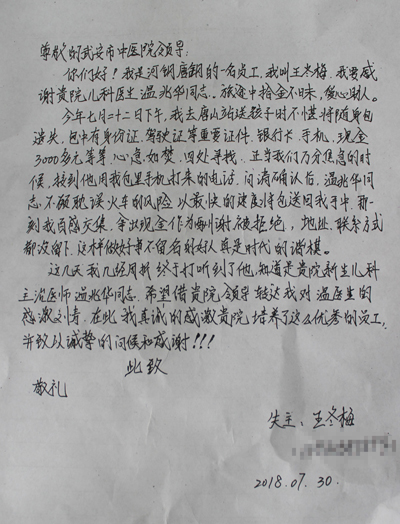 尊敬的武安市中医院领导:
你们好!我是河钢唐钢的一名员工,我叫王冬梅,我要感
谢贵院儿科医生温兆华同志。旅途中拾金不昧,爱心助人。
今年七月二十二日下午,我去唐山站送孩子时不慎将随身包
遗失,包中有身份证、驾驶证等重要证件,银行卡、手机,现金
3000多元等等,心急如焚,四处寻找,正当我们万分焦急的时
候,接到他用我包里手机打来的电话,问清确认后,温兆华同志
不顾耽误火车的风险以最快的速度将包送回我手中,那一
刻我百感交集,拿出现金作为酬谢被拒绝,地址、联系方式
都没留下,这样做好事不留名的好人真是时代的楷模。
这几天我几经周折终于打听到了他,知道是贵院新生儿科
主治医师温兆华同志,希望借贵院领导转达我对温医生的
感激之情,在此我真诚的感激贵院培养了这么优秀的员工,
并致以诚挚的问候和感谢!!!
此致
敬礼
失主:王冬梅
2018.07.30.